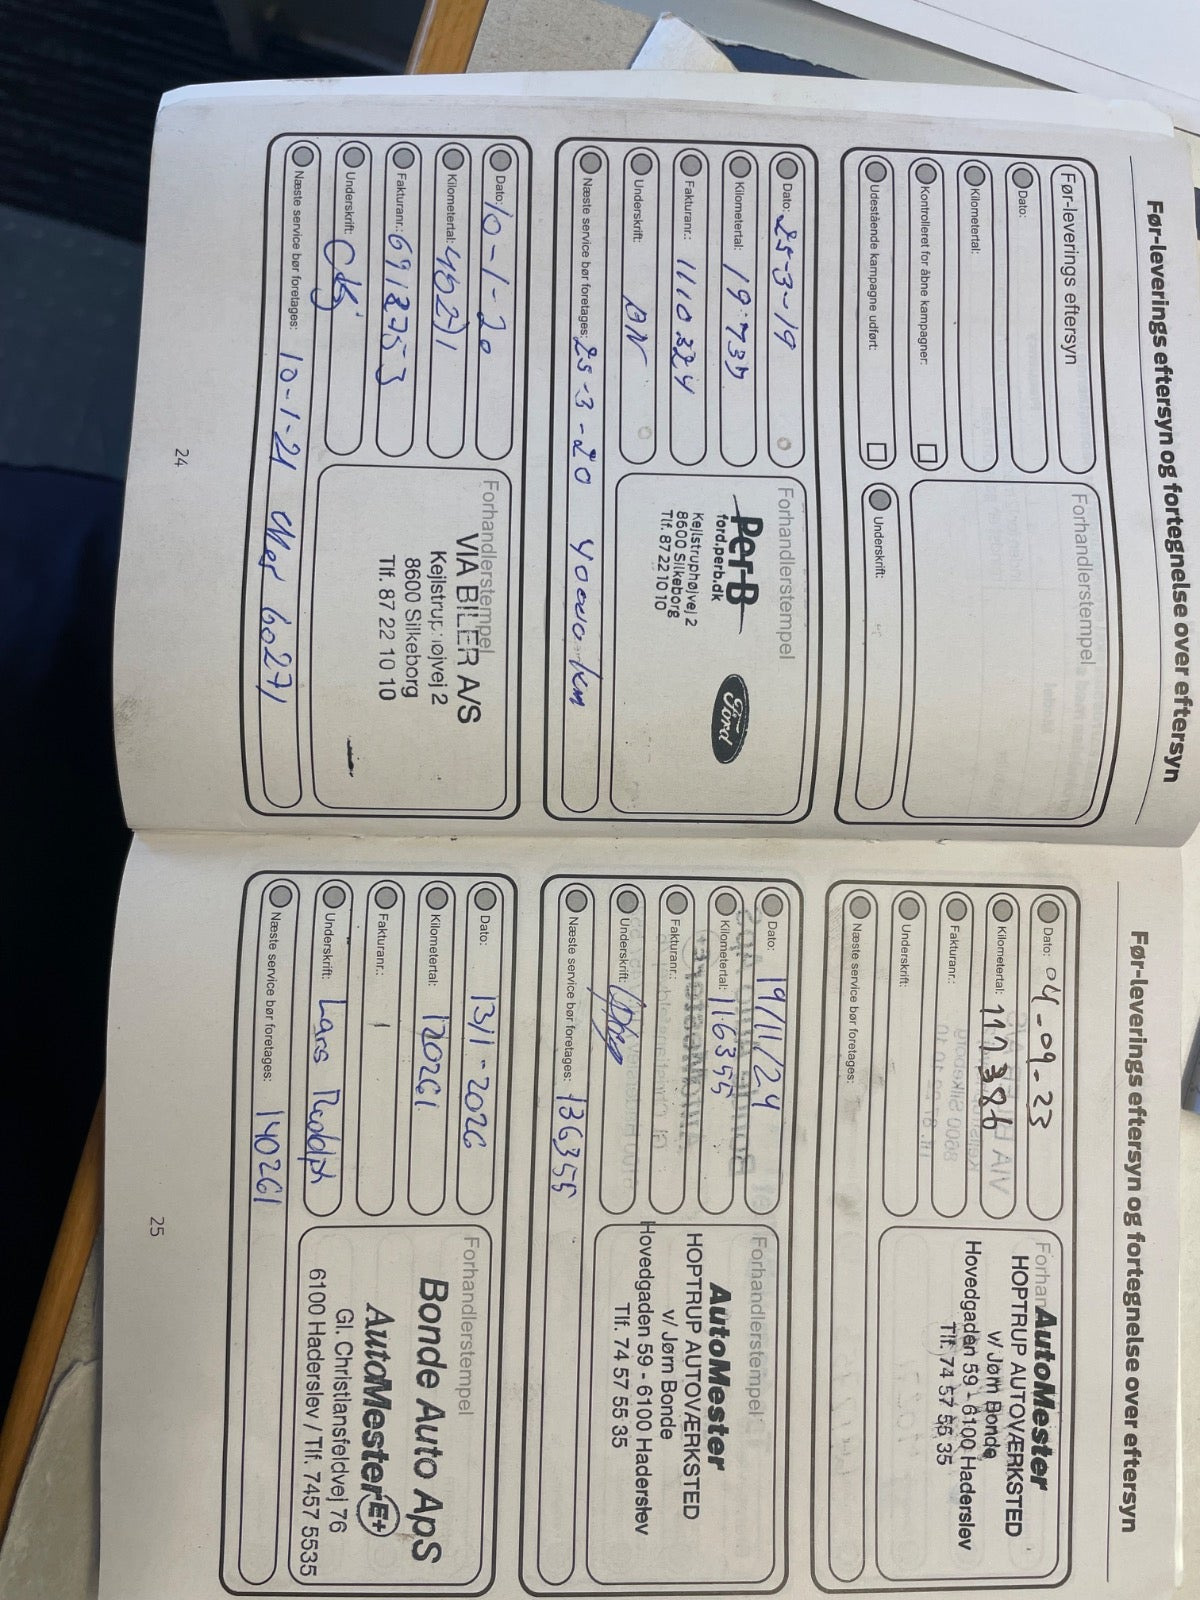 Før-leverings eftersyn og fortegnelse over eftersyn
Før-leverings eftersyn
Dato:
Kilometertal:
Kontrolleret for åbne kampagner:
Udestående kampagne udført:
Forhandlerstempel
Underskrift:
Dato: 25-3-19
Kilometertal:
Fakturanr.: 1110324
Underskrift: BN
Næste service bør foretages: 25-3-20 40000 km
Forhandlerstempel
Per-B
ford.perb.dk
Kejlstruphøjvej 2
8600 Silkeborg
Tlf. 87 22 10 10
Ford
Dato: 10-1-20
Kilometertal: 40271
Fakturanr.: 6918753
Underskrift:
Næste service bør foretages: 10-1-21 60271
Forhandlerstempel
VIA BILER A/S
Kejlstruphøjvej 2
8600 Silkeborg
Tlf. 87 22 10 10
24
Før-leverings eftersyn og fortegnelse over eftersyn
Dato: 04-09-23
Kilometertal: 111386
Fakturanr.:
Underskrift:
Næste service bør foretages:
AutoMester
HOPTRUP AUTOVÆRKSTED
v/ Jørn Bonde
Hovedgaden 59 - 6100 Haderslev
Tlf. 74 57 55 35
Dato: 19/11/24
Kilometertal: 116355
Fakturanr.:
Underskrift:
Næste service bør foretages: 136355
Forhandlerstempel
AutoMester
HOPTRUP AUTOVÆRKSTED
v/ Jørn Bonde
Hovedgaden 59 - 6100 Haderslev
Tlf. 74 57 55 35
Dato: 13/1-2026
Kilometertal: 120261
Fakturanr.:
Underskrift: Lars Rudolph
Næste service bør foretages: 140261
Forhandlerstempel
Bonde Auto ApS
AutoMester E+
Gl. Christiansfeldvej 76
6100 Haderslev / Tlf. 7457 5535
25